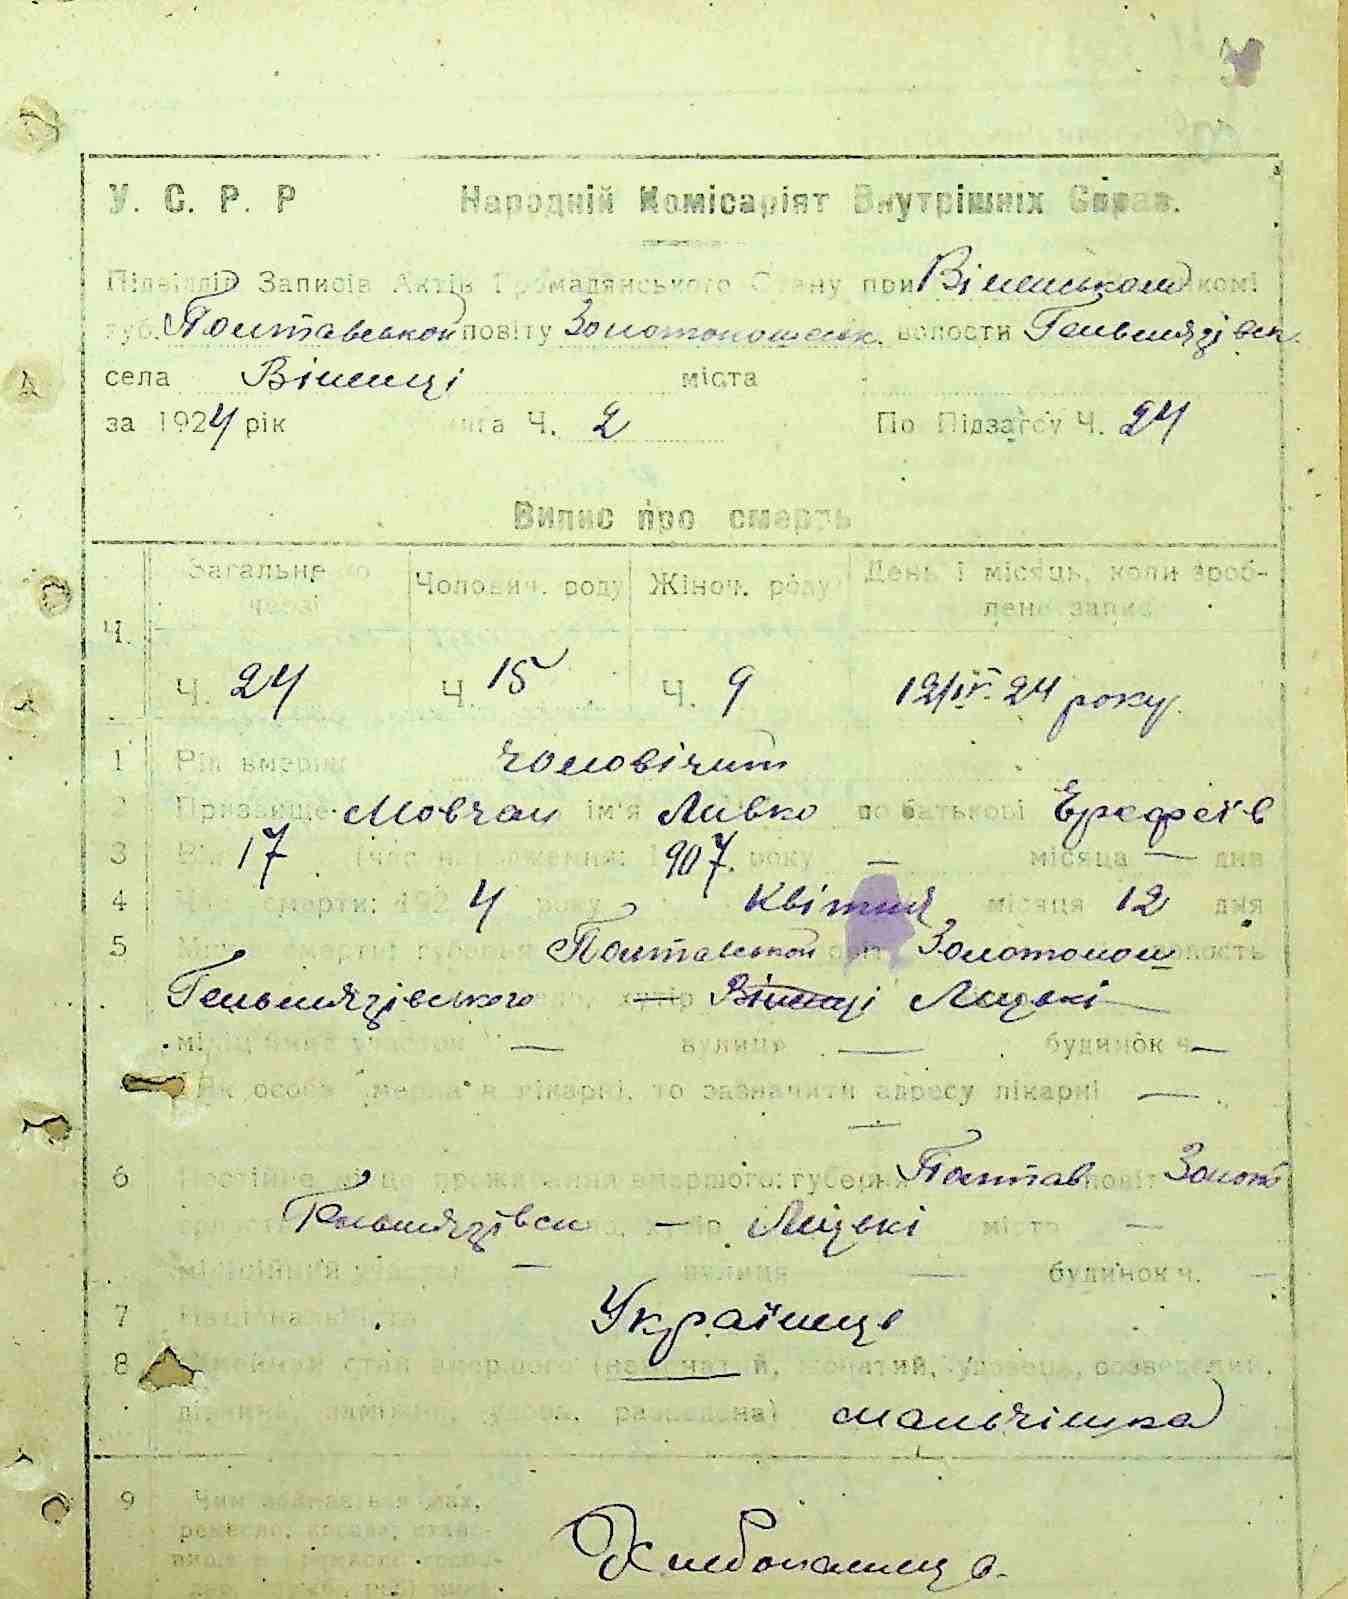 У. С. Р. Р Народній Комісаріят Внутрішніх Справ.
Підвідділ Записів Актів Громадянського Стану при Віненськом комі
губ. Полтавськой повіту Золотоношськ. волости Гельмязівск.
села Вінинці міста
за 1924 рік Книга Ч. 2 По Підзагсу Ч. 24
Випис про смерть
Загальне по Чоловіч. роду Жіноч. роду День і місяць, коли зроб-
черзі лено запис
Ч.
Ч. 24 Ч. 15 Ч. 9 12/IV. 24 року.
1 Рід вмерш. чоловічит
2 Призвище Мовчан ім'я Ливко по батькові Ерефеїв
3 Вік 17 (час народження: 1907. року — місяца — дня
4 Час смерти: 1924 року Квітня місяця 12 дня
5 Місце смерти: губерня Полтавськой Золотонош волость
Гельмязівського хутір — Вінинці Ліцькі
міліційний участок — вулиця — будинок ч. —
Як особа вмерла в лікарні, то зазначити адресу лікарні —
6 Постійне місце проживання вмершого: губерня Полтав повіт Золот
Гельмязівск хутір — Ліцькі місто —
міліційний — вулиця — будинок ч. —
7 Національність Українець
8 Сімейний стан вмершого (нежонатий, жонатий, удовець, розведений,
дівчина, заміжня, удова, разведена) мальчішка
9 Чим займався
ремесло, посада, стано-
Хлебопашец.